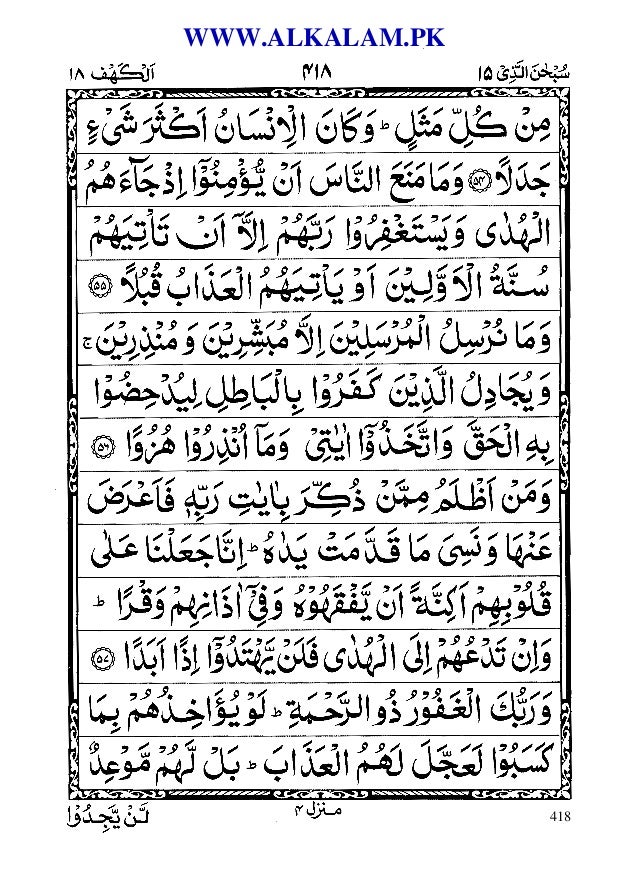 WWW.ALKALAM.PK
سُبْحٰنَ الَّذِیْۤ ١٥ ۴١٨ اَلْكَهْف ١٨
مِنْ كُلِّ مَثَلٍ ؕ وَكَانَ الْاِنْسَانُ اَكْثَرَ شَیْءٍ
جَدَلًا ﴿۵۴﴾ وَمَا مَنَعَ النَّاسَ اَنْ یُّؤْمِنُوْۤا اِذْ جَآءَهُمُ
الْهُدٰی وَیَسْتَغْفِرُوْا رَبَّهُمْ اِلَّاۤ اَنْ تَاْتِیَهُمْ
سُنَّةُ الْاَوَّلِیْنَ اَوْ یَاْتِیَهُمُ الْعَذَابُ قُبُلًا ﴿۵۵﴾
وَمَا نُرْسِلُ الْمُرْسَلِیْنَ اِلَّا مُبَشِّرِیْنَ وَمُنْذِرِیْنَ ۚ
وَیُجَادِلُ الَّذِیْنَ كَفَرُوْا بِالْبَاطِلِ لِیُدْحِضُوْا
بِهِ الْحَقَّ وَاتَّخَذُوْۤا اٰیٰتِیْ وَمَاۤ اُنْذِرُوْا هُزُوًا ﴿۵۶﴾
وَمَنْ اَظْلَمُ مِمَّنْ ذُكِّرَ بِاٰیٰتِ رَبِّهٖ فَاَعْرَضَ
عَنْهَا وَنَسِیَ مَا قَدَّمَتْ یَدٰهُ ؕ اِنَّا جَعَلْنَا عَلٰی
قُلُوْبِهِمْ اَكِنَّةً اَنْ یَّفْقَهُوْهُ وَفِیْۤ اٰذَانِهِمْ وَقْرًا ؕ
وَاِنْ تَدْعُهُمْ اِلَی الْهُدٰی فَلَنْ یَّهْتَدُوْۤا اِذًا اَبَدًا ﴿۵۷﴾
وَرَبُّكَ الْغَفُوْرُ ذُو الرَّحْمَةِ ؕ لَوْ یُؤَاخِذُهُمْ بِمَا
كَسَبُوْا لَعَجَّلَ لَهُمُ الْعَذَابَ ؕ بَلْ لَّهُمْ مَّوْعِدٌ
لَّنْ یَّجِدُوْا منزل ۴ 418